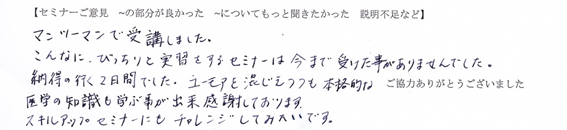 【セミナーご意見　~の部分が良かった　~についてもっと聞きたかった　説明不足など】
マンツーマンで受講しました。
こんなに、びっちりと実習をするセミナーは今まで受けた事がありませんでした。
納得の行く2日間でした。ユーモアを混じえつつも本格的な
ご協力ありがとうございました
医学の知識も学ぶ事が出来感謝しております。
スキルアップセミナーにもチャレンジしてみたいです。